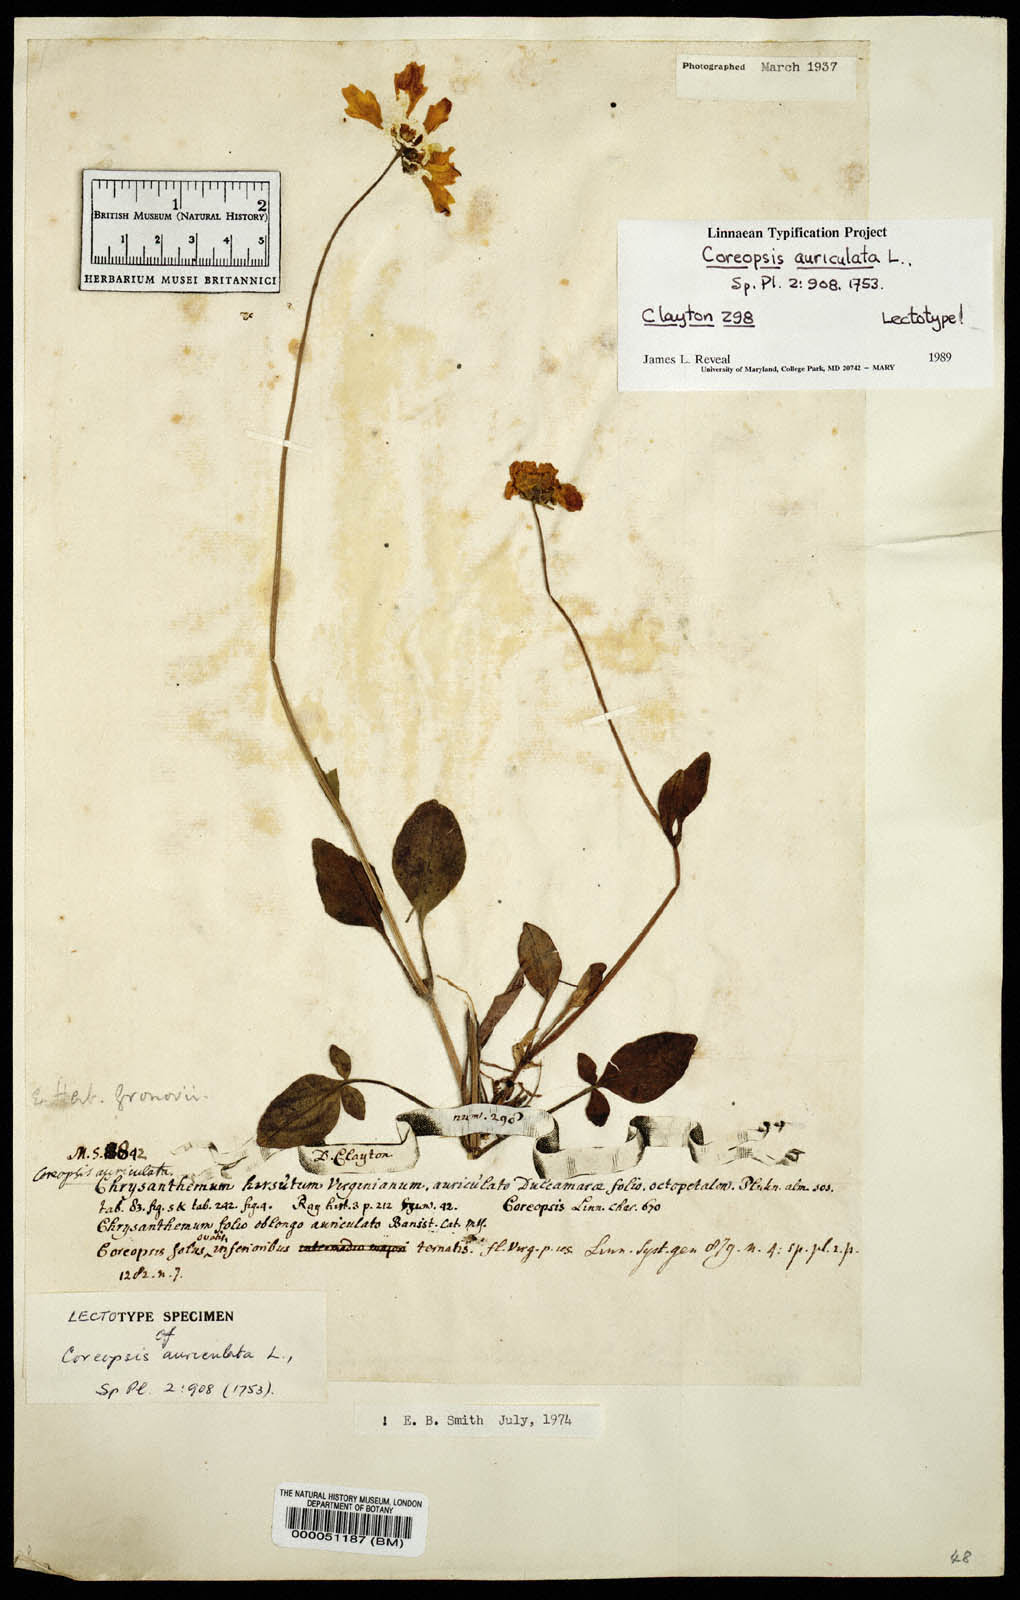 Photographed March 1937
1 2
BRITISH MUSEUM (NATURAL HISTORY)
1 2 3 4 5
HERBARIUM MUSEI BRITANNICI
Linnaean Typification Project
Coreopsis auriculata L.,
Sp. Pl. 2: 908. 1753.
Clayton 298 Lectotype!
James L. Reveal 1989
University of Maryland, College Park, MD 20742 – MARY
Herb. Gronovii.
num. 298
D. Clayton.
M.S. 42
Coreopsis auriculata.
Chrysanthemum hirsutum Virginianum, auriculato Dulcamaræ folio, octopetalon. Pluk. alm. 101.
tab. 83. fig. 5 & tab. 242. fig. 4. Ray hist. 3 p. 212 42. Coreopsis Linn. char. 670
Chrysanthemum folio oblongo auriculato Banist. Cat. Mss.
Coreopsis foliis ovatis inferioribus ternatis. fl. Virg. p. Linn. Syst. gen 879. n. 4: sp. pl. 2. p.
1282. n. 7.
LECTOTYPE SPECIMEN
of
Coreopsis auriculata L.,
Sp Pl. 2:908 (1753).
! E. B. Smith July, 1974
THE NATURAL HISTORY MUSEUM, LONDON
DEPARTMENT OF BOTANY
000051187 (BM)
48